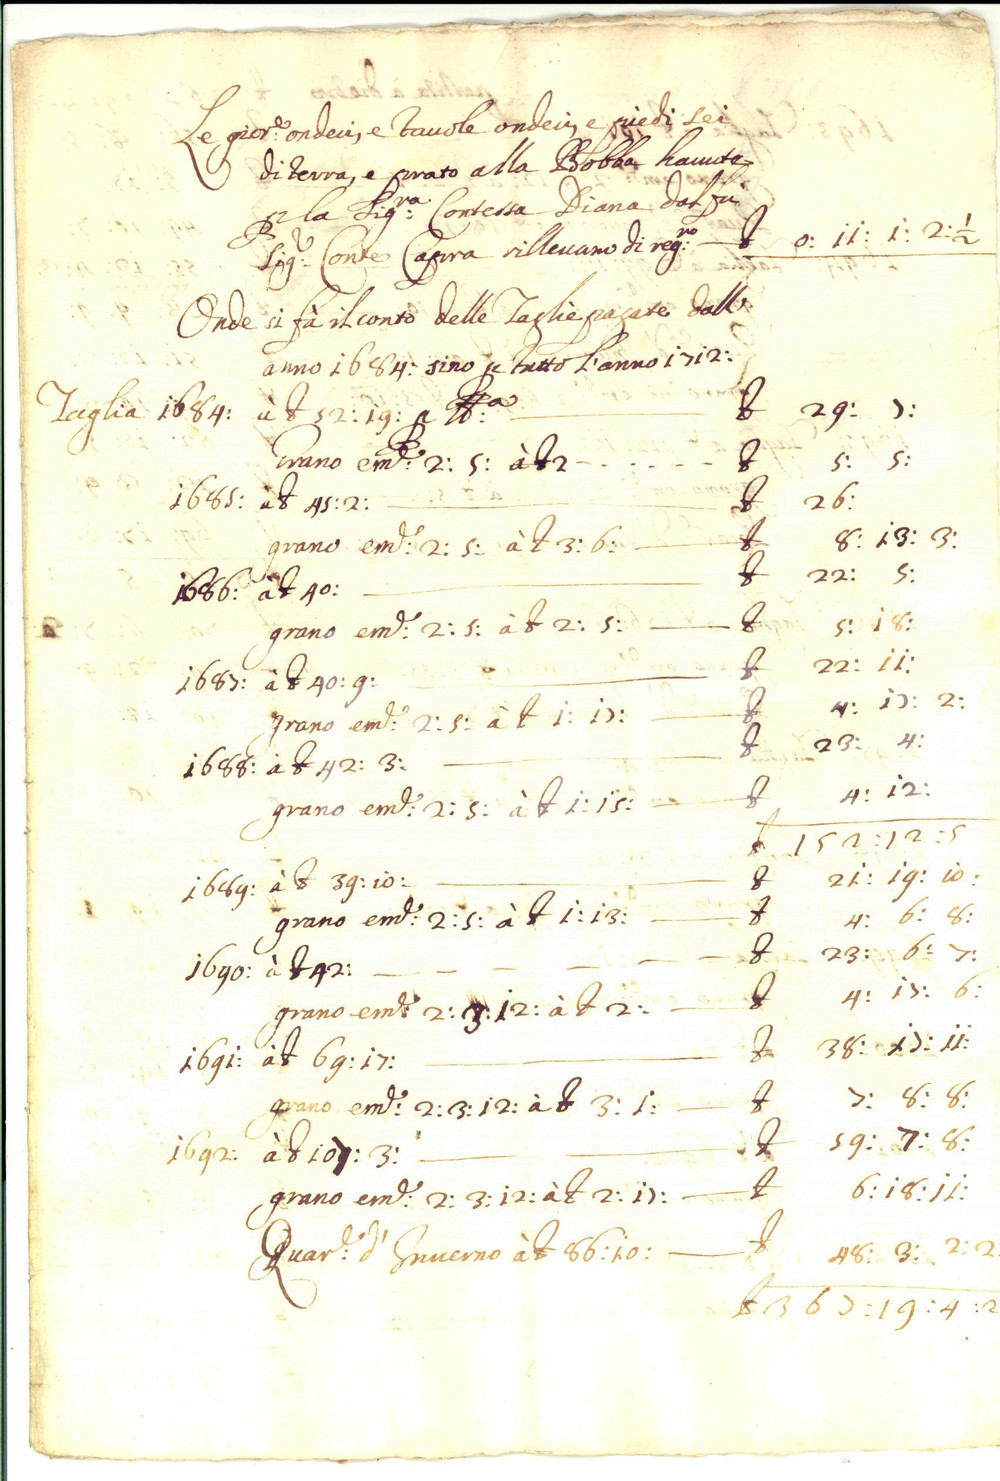 Le gior.e ondeci, e tauole ondeci, e piedi sei
di terra, e prato alla Bobba hauuta
p la Sig.ra Contessa Diana dal fù
Sig.r Conte Capra rilleuano di reg.ro — ₶ 0: 11: 1: 2: ½
Onde si fà il conto delle Taglie pagate dall
anno 1684: sino p tutto l'anno 1712:
Taglia 1684: à ₶ 52: 19: p ₶.a ₶ 29: 7:
Grano em.e 2: 5: à ₶ 2 - - - - - - ₶ 5: 5:
1685: à ₶ 45: 2: ₶ 26:
grano em.e 2: 5: à ₶ 3: 6: — ₶ 8: 13: 3:
1686: à ₶ 40: — ₶ 22: 5:
grano em.e 2: 5: à ₶ 2: 5: — ₶ 5: 18:
1687: à ₶ 40: 9: — ₶ 22: 11:
grano em.e 2: 5: à ₶ 1: 17: — ₶ 4: 17: 2:
1688: à ₶ 42: 3: — ₶ 23: 4:
grano em.e 2: 5: à ₶ 1: 15: — ₶ 4: 12:
₶ 152: 12: 5
1689: à ₶ 39: 10: — ₶ 21: 19: 10:
grano em.e 2: 5: à ₶ 1: 13: — ₶ 4: 6: 8:
1690: à ₶ 42: — — — — — — ₶ 23: 6: 7:
grano em.e 2: 3: 12: à ₶ 2: — ₶ 4: 17: 6:
1691: à ₶ 69: 17: — ₶ 38: 17: 11:
grano em.e 2: 3: 12: à ₶ 3: 1: — ₶ 7: 8: 8:
1692: à ₶ 107: 3: — ₶ 59: 7: 8:
grano em.e 2: 3: 12: à ₶ 2: 17: — ₶ 6: 18: 11:
Quar.e d' Inuerno à ₶ 86: 10: — ₶ 48: 3: 2: 2:
₶ 367: 19: 4: 2